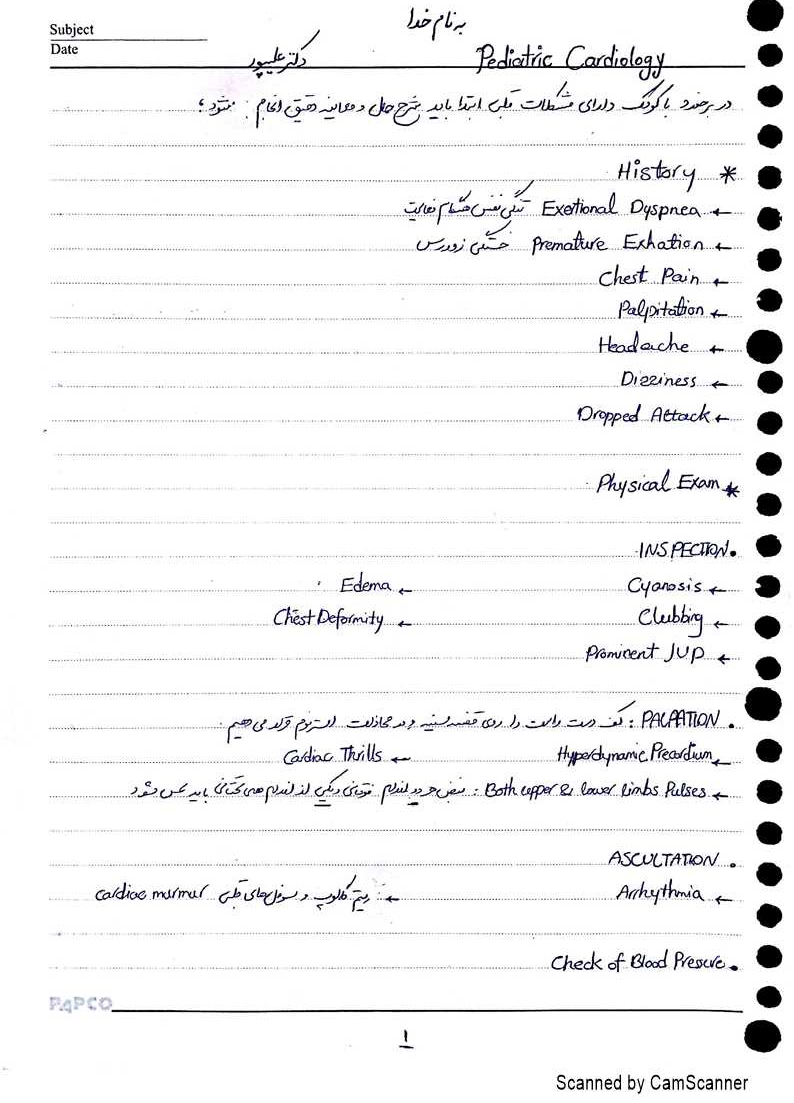 به نام خدا
Subject
Date
Pediatric Cardiology دکتر علیپور
در برخورد با کودک دارای مشکلات قلبی ابتدا باید شرح حال و معاینه دقیق انجام شود؛
* History
← Exertional Dyspnea تنگی نفس هنگام فعالیت
← Premature Exhation خستگی زودرس
← Chest Pain
← Palpitation
← Headache
← Dizziness
← Dropped Attack
* Physical Exam
• INSPECTION
← Cyanosis ← Edema
← Clubbing ← Chest Deformity
← Prominent JVP
• PALPATION : کف دست راست را روی قفسه سینه و در محاذات استرنوم قرار می دهیم.
← Hyperdynamic Precordium ← Cardiac Thrills
← Both upper & lower limbs Pulses : نبض هر دو اندام فوقانی و یکی از اندام های تحتانی باید لمس شود
• ASCULTATION
← Arrhythmia ← ریتم گالوپ و سوفل های قلبی cardiac murmur
• Check of Blood Presure
PAPCO
۱
Scanned by CamScanner